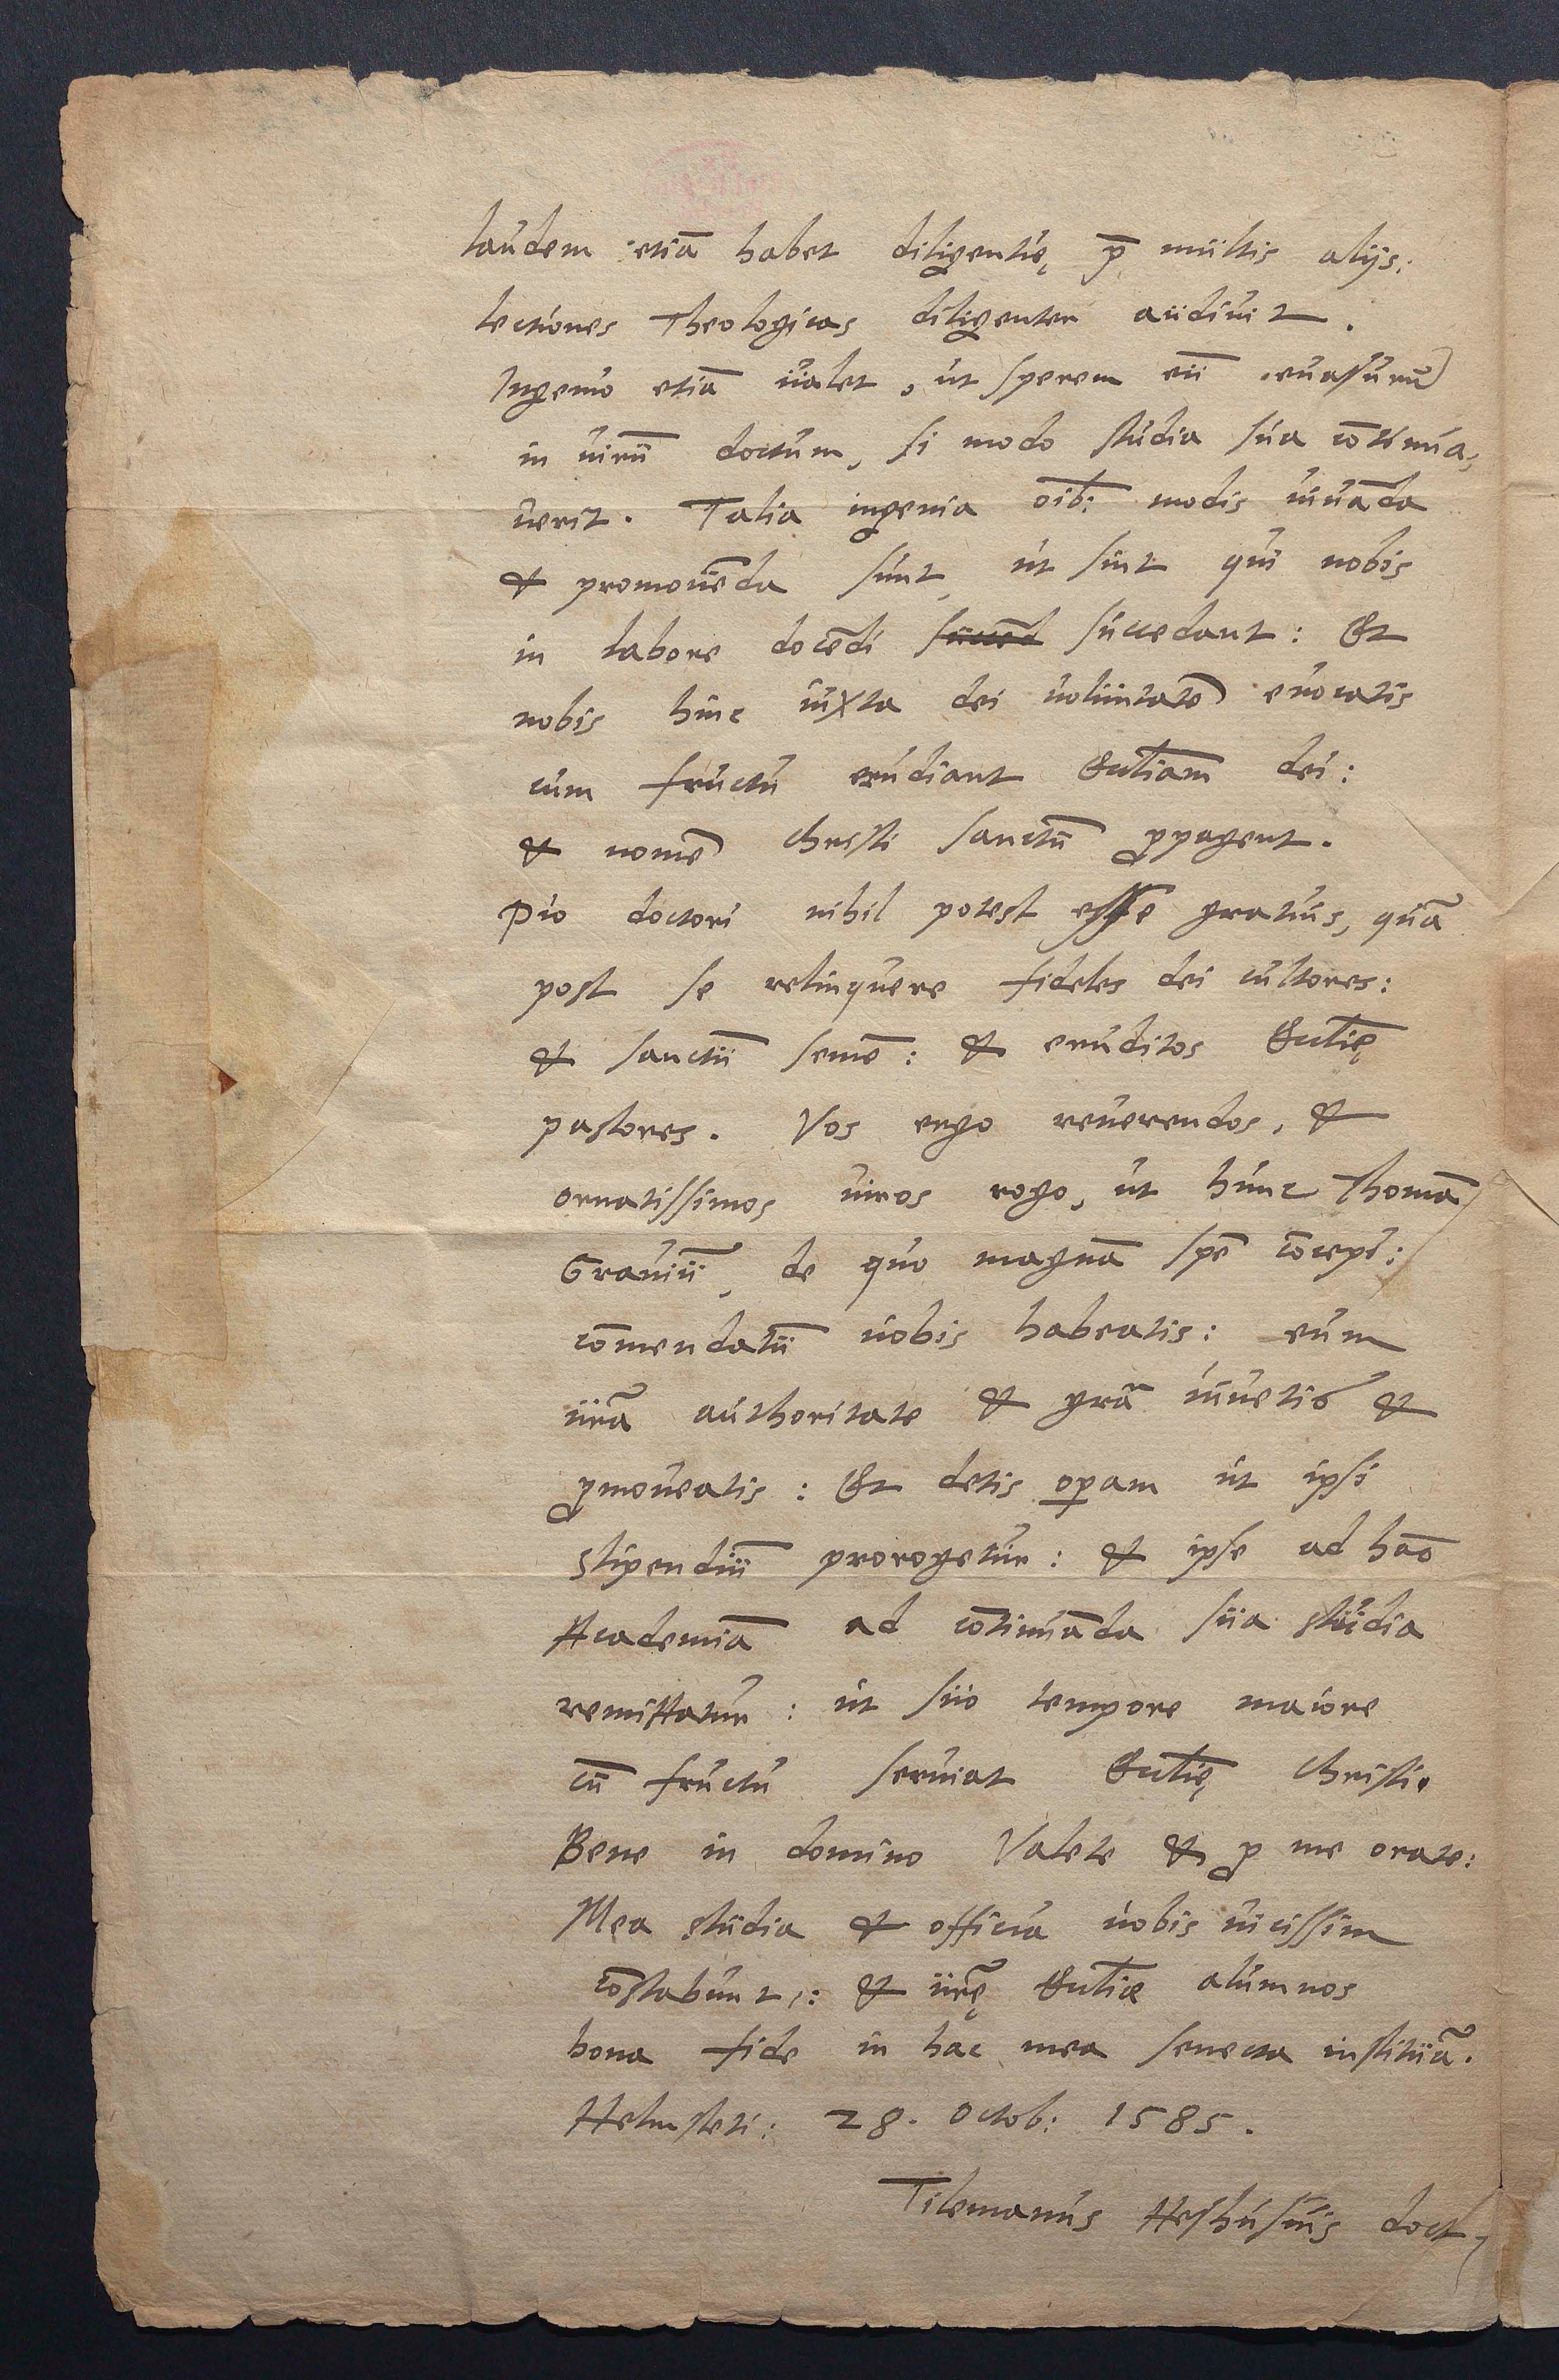 laudem etiā habet diligentię p̄ multis alijs:
lectiones Theologicas diligenter audiuit.
Ingenio etiā ualet, ut sperem eū euasurū
in uirū doctum, si modo studia sua cōtinua,
uerit. Talia ingenia oīb: modis iuuāda
& promouēda sunt, ut sint qui nobis
in labore docēdi succed succedant: Et
nobis hinc iuxta dei uoluntatē euocatis
cum fructu erudiant Ecclīam dei:
& nomē Christi sanctū ꝓpagent.
Pio doctori nihil potest esse gratius, quā
post se relinquere fideles dei cultores:
& sanctū semē: & eruditos Ecclīę
pastores. Vos ergo reuerendos, &
ornatissimos uiros rogo, ut hunc Thomā
Grauiū, de quo magnā spē cōcepi:
cōmendatū uobis habeatis: eum
ūrā authoritate & grā iuuetis &
ꝓmoueatis: Et detis oꝑam ut ipsi
stipendiū prorogetur: & ipse ad hāc
Academiā ad cōtinuāda sua studia
remittatur: ut suo tempore maiore
cū fructu seruiat Ecclīę Christi.
Bene in domino Valete & ꝓ me orate:
Mea studia & officia uobis uicissim
cōstabunt,: & ūrę Ecclīæ alumnos
bona fide in hac mea senecta instituā.
Helmsteti: 28. Octob: 1585.
Tilemanus Heshusius doct,